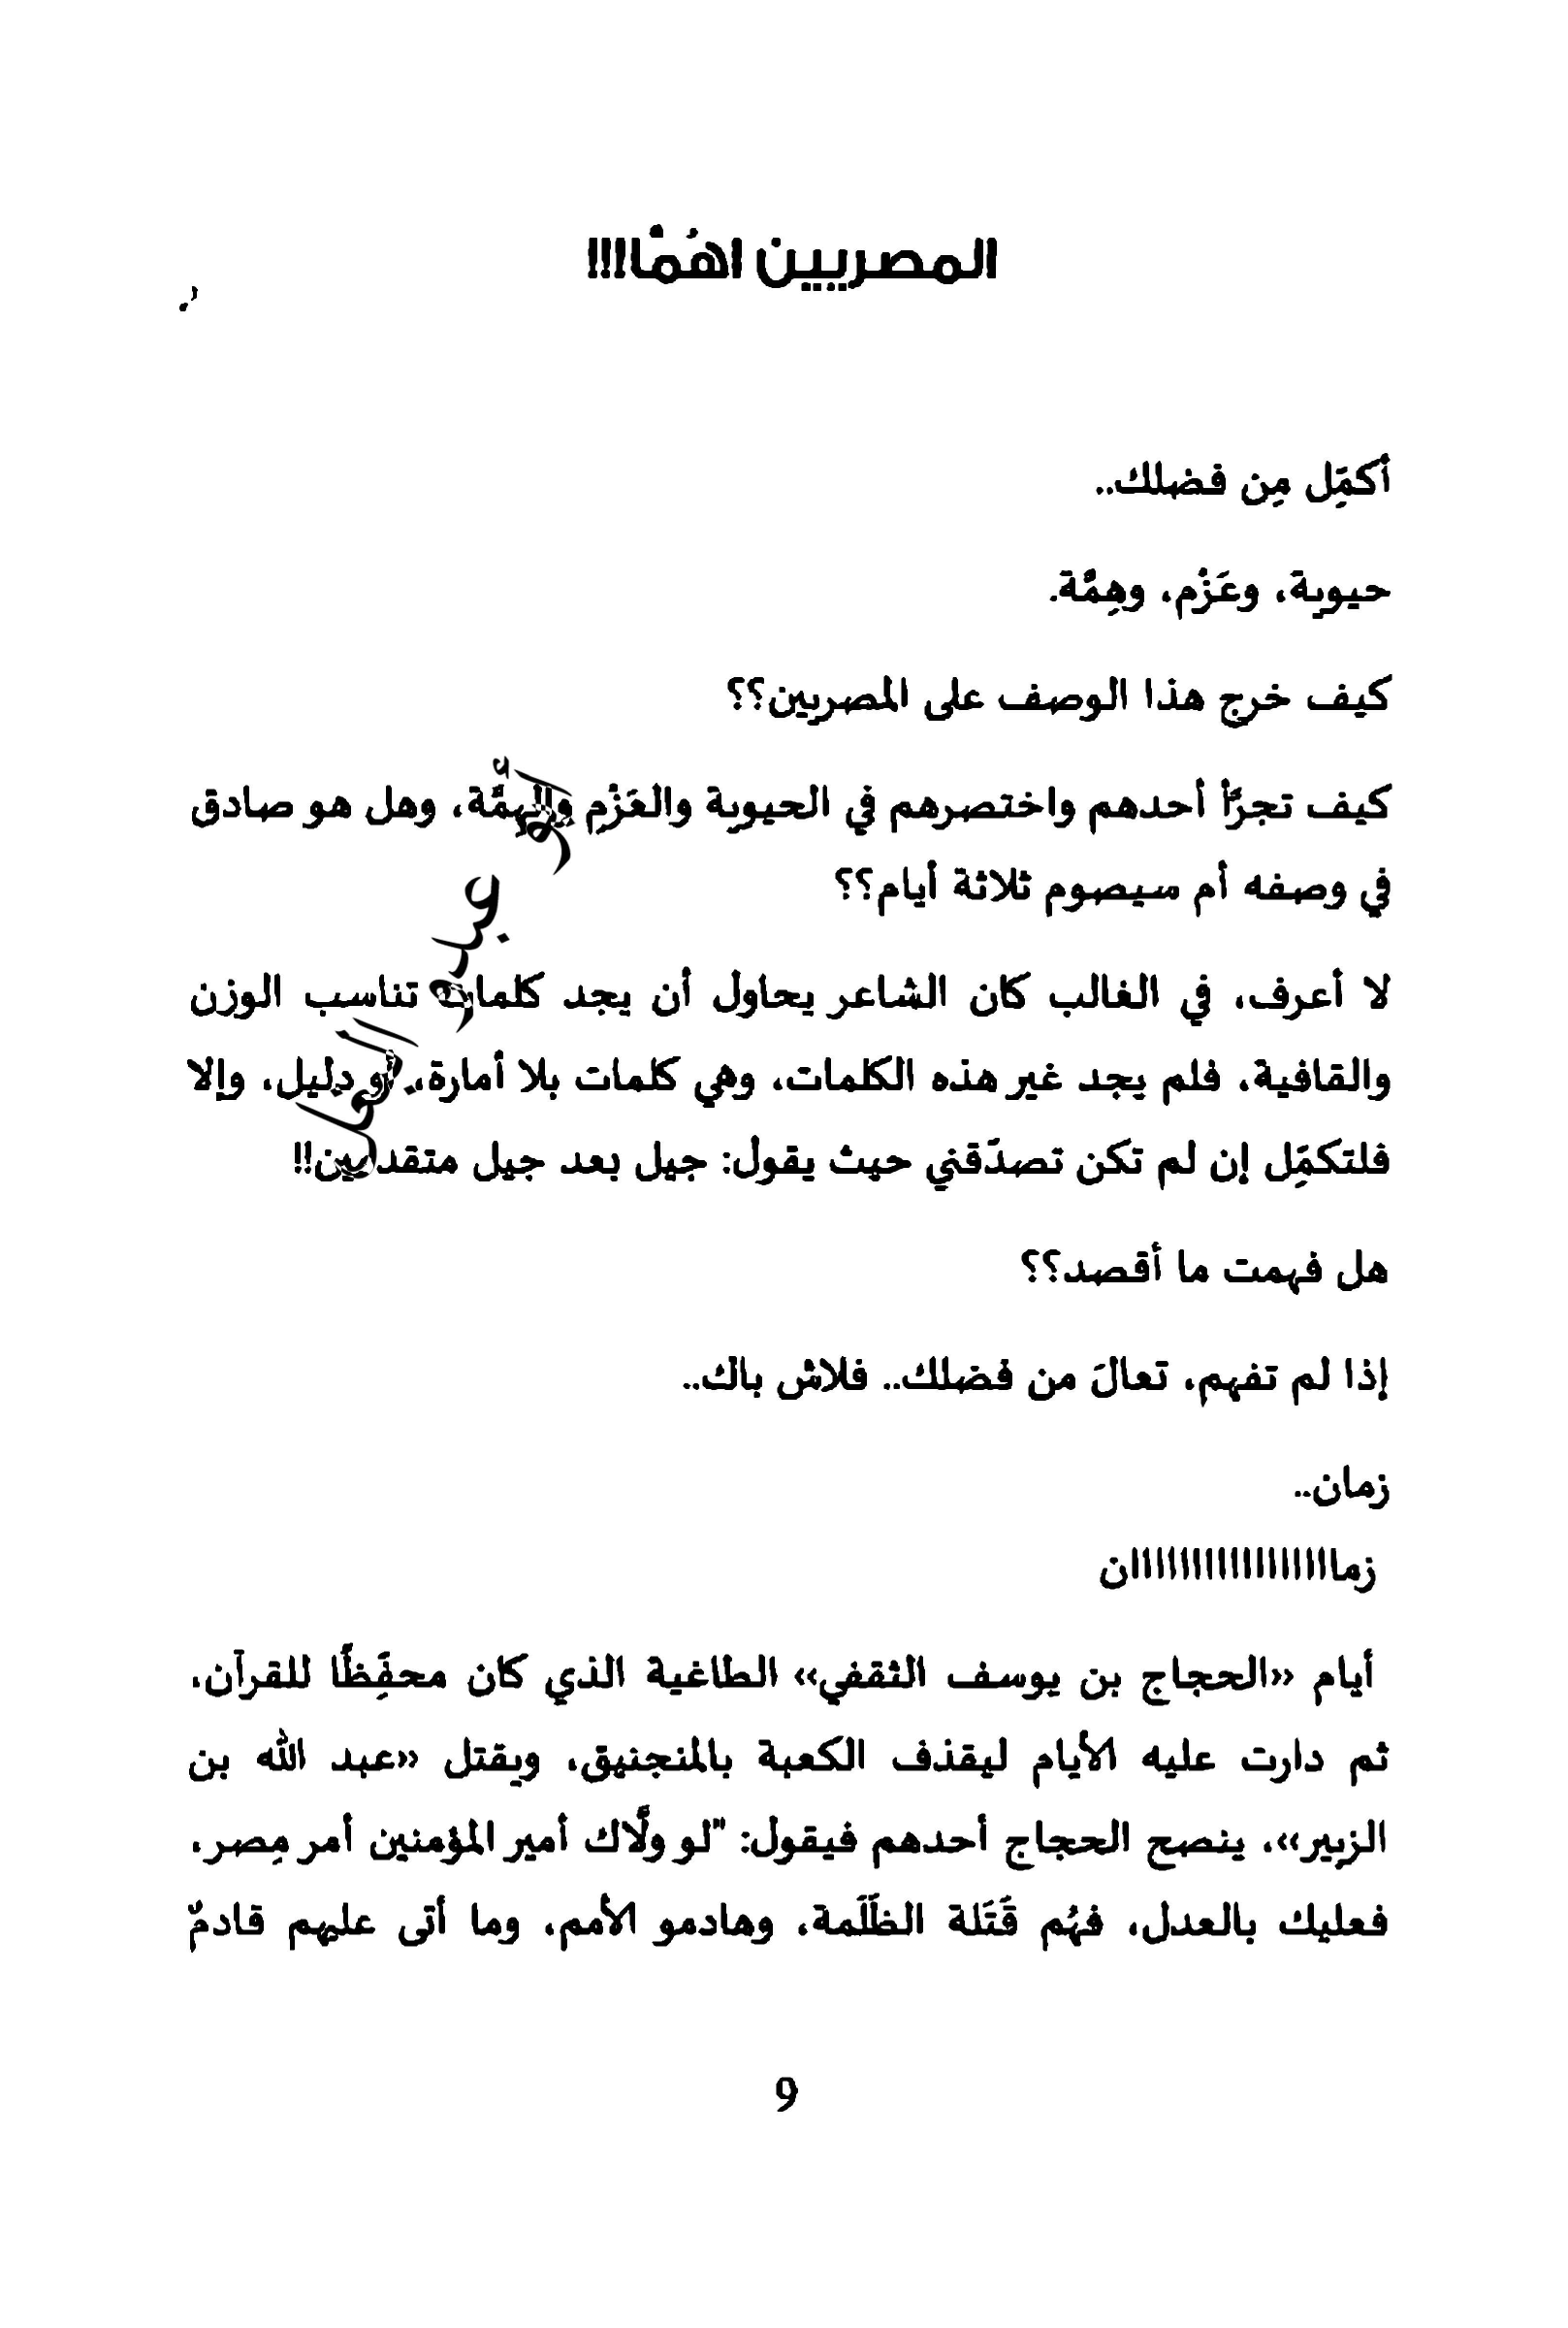 المصريين اهُمَّا!!!
أكمِّل مِن فضلك..
حيوية، وعَزْم، وهِمَّة.
كيف خرج هذا الوصف على المصريين؟؟
كيف تجرَّأ أحدهم واختصرهم في الحيوية والعَزْمِ والهِمَّة، وهل هو صادق
في وصفه أم سيصوم ثلاثة أيام؟؟
لا أعرف، في الغالب كان الشاعر يحاول أن يجد كلمات تناسب الوزن
والقافية، فلم يجد غير هذه الكلمات، وهي كلمات بلا أمارة، أو دليل، وإلا
فلتكمِّل إن لم تكن تصدّقني حيث يقول: جيل بعد جيل متقدمين!!
هل فهمت ما أقصد؟؟
إذا لم تفهم، تعالَ من فضلك.. فلاش باك..
زمان..
زماااااااااااااااااان
أيام «الحجاج بن يوسف الثقفي» الطاغية الذي كان محفِّظًا للقرآن،
ثم دارت عليه الأيام ليقذف الكعبة بالمنجنيق، ويقتل «عبد الله بن
الزبير»، ينصح الحجاج أحدهم فيقول: "لو ولَّاك أمير المؤمنين أمر مِصر،
فعليك بالعدل، فهُم قَتَلة الظَلَمة، وهادمو الأمم، وما أتى عليهم قادمٌ
9